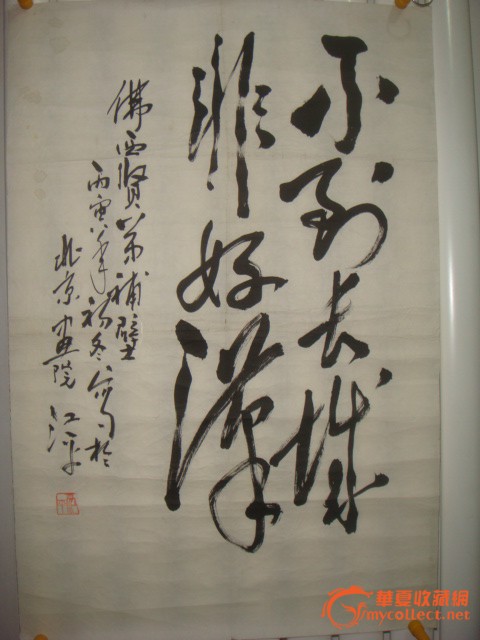 不到长城
非好漢
佛西贤弟補壁
丙寅年初冬於
北京画院 江平
華夏收藏網
mycollect.net